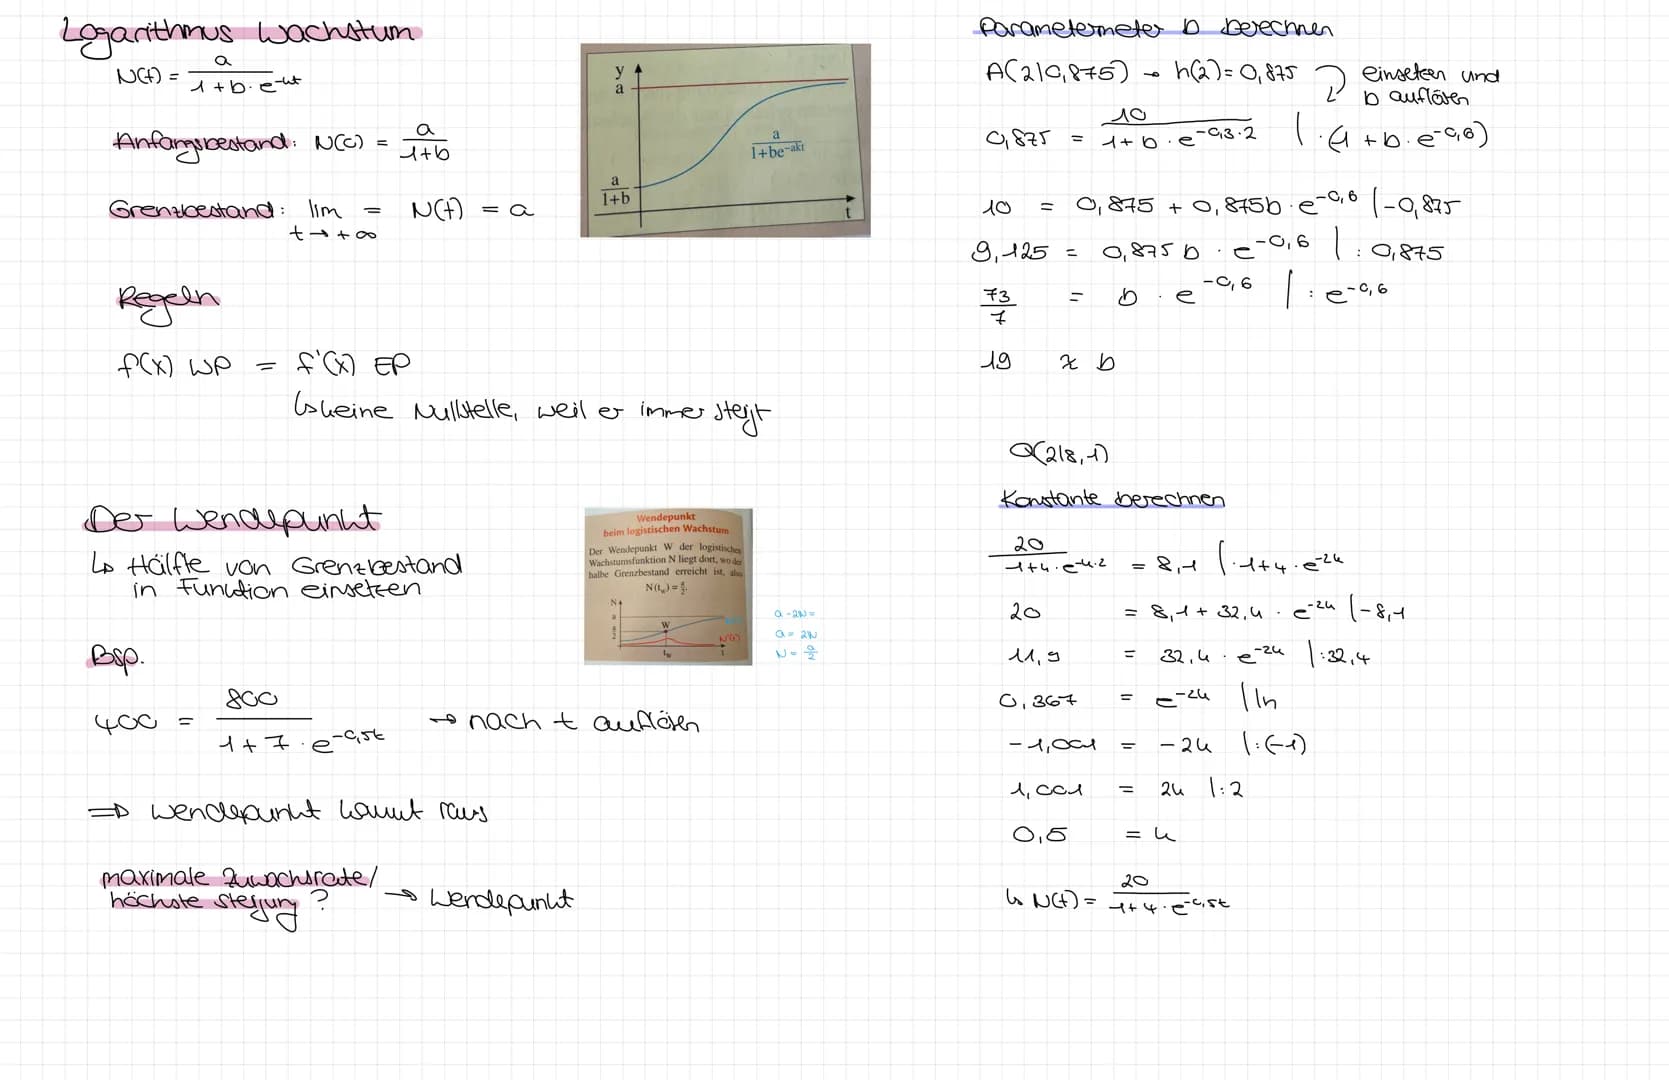 Logarithmus Wachstum
N(t) = a / 1 + b · e^-kt
Anfangsbestand: N(0) = a / 1+b
Grenzbestand: lim = N(t) = a
t → +∞
y
a
a / 1+be^-akt
a / 1+b
t
Regeln
f(x) WP = f'(x) EP
↳ keine Nullstelle, weil er immer steigt
Der Wendepunkt
↳ Hälfte von Grenzbestand
in Funktion einsetzen
Wendepunkt
beim logistischen Wachstum
Der Wendepunkt W der logistischen
Wachstumsfunktion N liegt dort, wo der
halbe Grenzbestand erreicht ist, also
N(t_w) = a/2.
N
a
a/2
W
N'(t)
t_w
t
a - 2N =
a = 2N
N = a/2
Bsp.
400 = 800 / 1 + 7 · e^-0,5t → nach t auflösen
⇒ Wendepunkt kommt raus
maximale Zuwachsrate/
höchste Steigung? → Wendepunkt
Parametermeter b berechnen
A(2|0,875) → h(2) = 0,875 einsetzen und
b auflösen
0,875 = 10 / 1 + b · e^-0,3·2 | · (1 + b · e^-0,6)
10 = 0,875 + 0,875b · e^-0,6 | -0,875
9,125 = 0,875 b · e^-0,6 | : 0,875
73/7 = b · e^-0,6 | : e^-0,6
19 ≈ b
Q(2|8,1)
Konstante berechnen
20 / 1+4·e^-k·2 = 8,1 | · 1+4·e^-2k
20 = 8,1 + 32,4 · e^-2k | -8,1
11,9 = 32,4 · e^-2k | :32,4
0,367 = e^-2k | ln
-1,001 = -2k | :(-1)
1,001 = 2k | :2
0,5 = k
↳ N(t) = 20 / 1+4·e^-0,5t